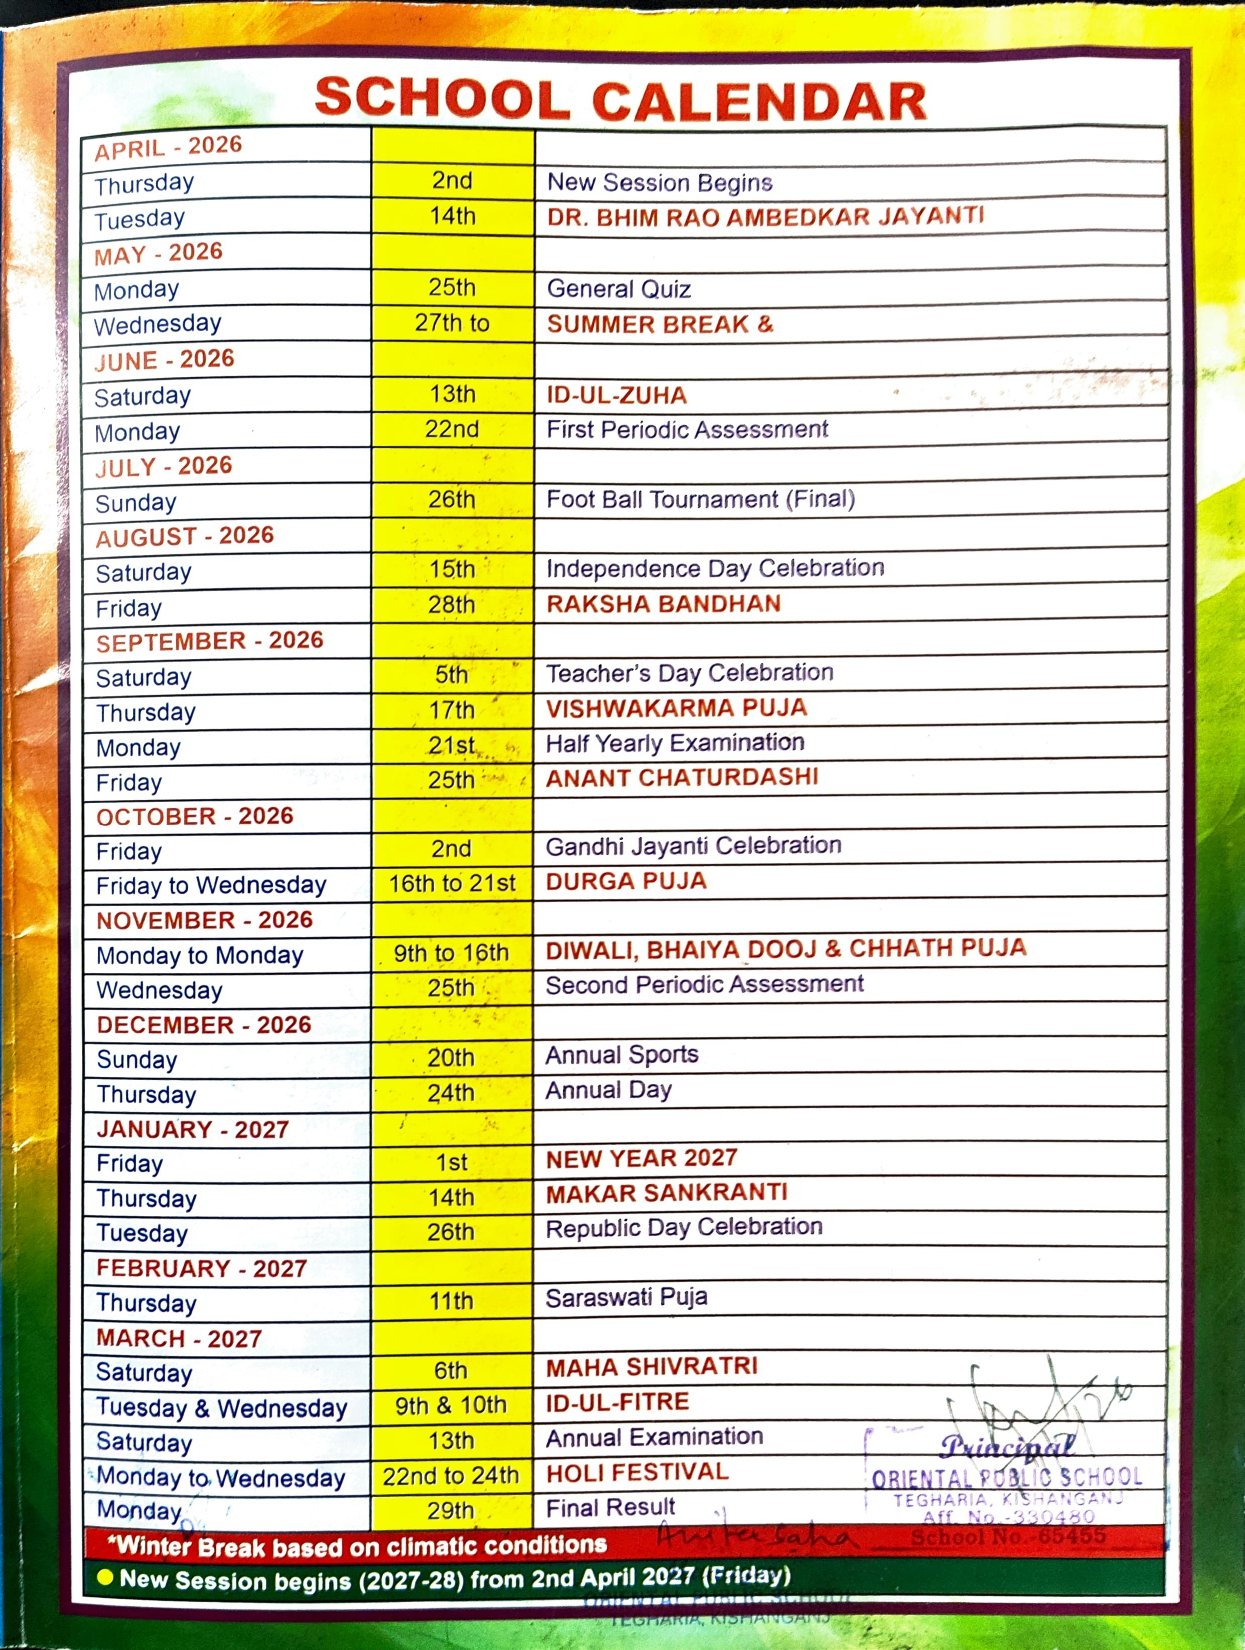 SCHOOL CALENDAR
APRIL - 2026
Thursday 2nd New Session Begins
Tuesday 14th DR. BHIM RAO AMBEDKAR JAYANTI
MAY - 2026
Monday 25th General Quiz
Wednesday 27th to SUMMER BREAK &
JUNE - 2026
Saturday 13th ID-UL-ZUHA
Monday 22nd First Periodic Assessment
JULY - 2026
Sunday 26th Foot Ball Tournament (Final)
AUGUST - 2026
Saturday 15th Independence Day Celebration
Friday 28th RAKSHA BANDHAN
SEPTEMBER - 2026
Saturday 5th Teacher's Day Celebration
Thursday 17th VISHWAKARMA PUJA
Monday 21st Half Yearly Examination
Friday 25th ANANT CHATURDASHI
OCTOBER - 2026
Friday 2nd Gandhi Jayanti Celebration
Friday to Wednesday 16th to 21st DURGA PUJA
NOVEMBER - 2026
Monday to Monday 9th to 16th DIWALI, BHAIYA DOOJ & CHHATH PUJA
Wednesday 25th Second Periodic Assessment
DECEMBER - 2026
Sunday 20th Annual Sports
Thursday 24th Annual Day
JANUARY - 2027
Friday 1st NEW YEAR 2027
Thursday 14th MAKAR SANKRANTI
Tuesday 26th Republic Day Celebration
FEBRUARY - 2027
Thursday 11th Saraswati Puja
MARCH - 2027
Saturday 6th MAHA SHIVRATRI
Tuesday & Wednesday 9th & 10th ID-UL-FITRE
Saturday 13th Annual Examination
Monday to Wednesday 22nd to 24th HOLI FESTIVAL
Monday 29th Final Result
Principal
ORIENTAL PUBLIC SCHOOL
TEGHARIA, KISHANGANJ
Aff. No.-330480
School No.-65455
*Winter Break based on climatic conditions
New Session begins (2027-28) from 2nd April 2027 (Friday)
ORIENTAL PUBLIC SCHOOL
TEGHARIA, KISHANGANJ